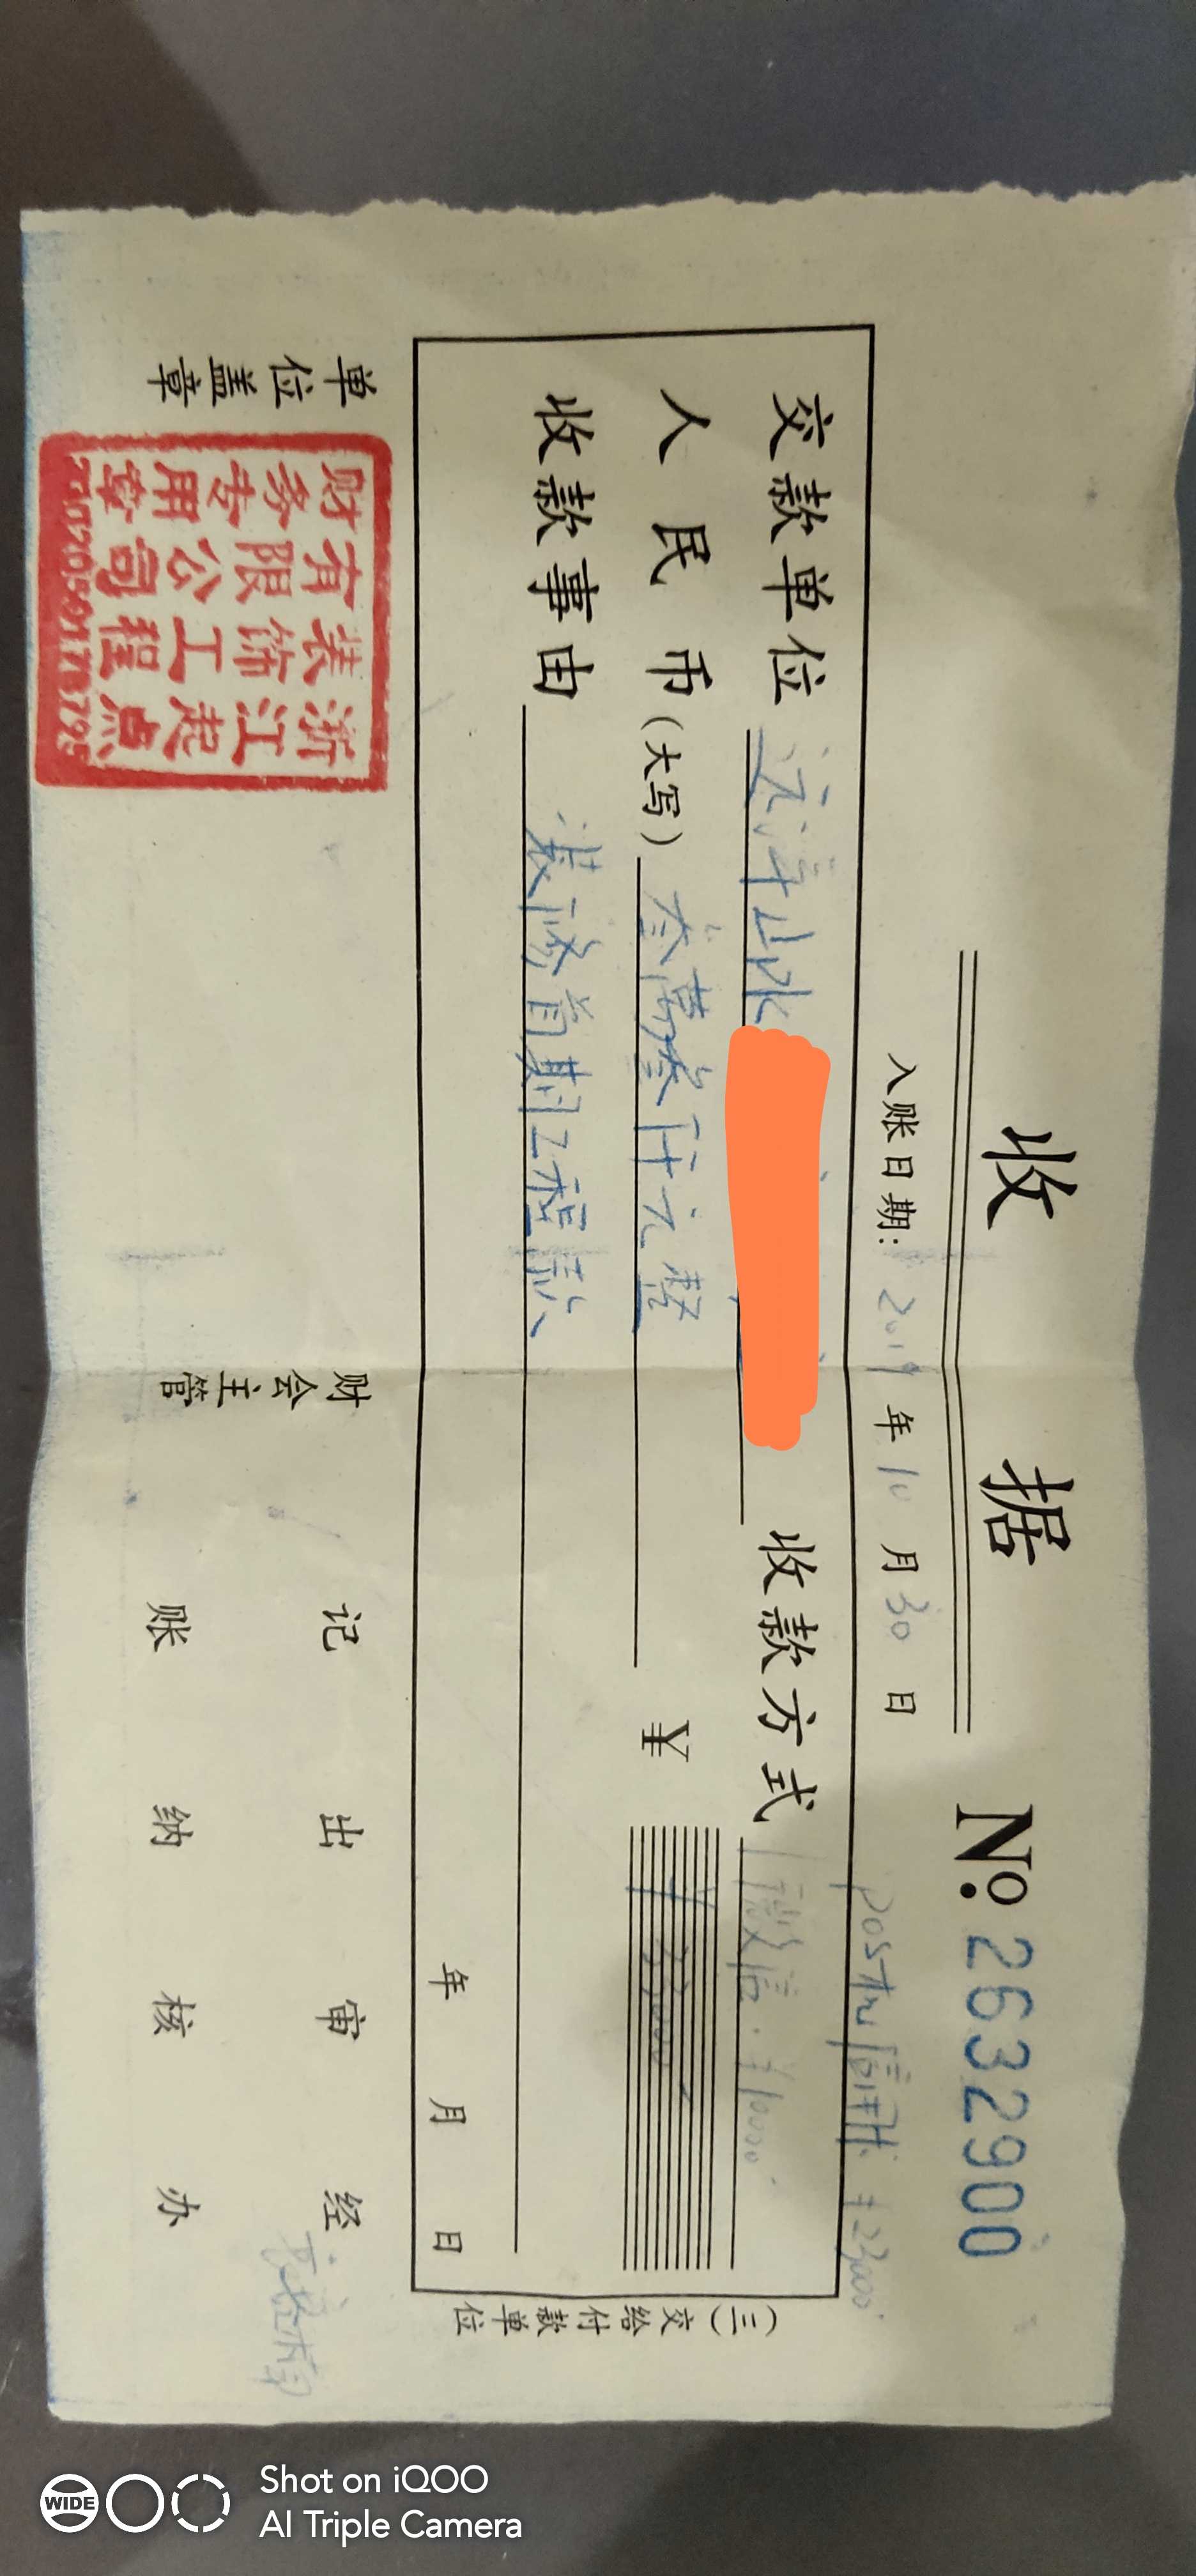 收 据 № 2632900
入账日期: 2019 年 10 月 30 日
pos机 信用卡 ¥23000
交款单位 山水 收款方式 微信 ¥10000
人民币(大写) 叁萬叁仟元整 ¥ ¥33000
收款事由 装修首期工程款
年 月 日
(三)交给付款单位
单位盖章 财会主管 记账 出纳 审核 经办
浙江起点
装饰工程
有限公司
财务专用章
Shot on iQOO
AI Triple Camera
WIDE